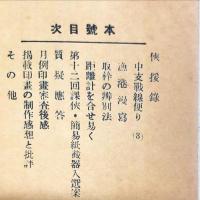 本號目次
俠援錄
中支戰線便り (8)
漁港漫寫
取枠の辨別法
距離計を合せ易く
第十二回課俠・簡易紙藏器入選案
質疑應答
月例印畫審査後感
揭載印畫の制作感想と批評
その他